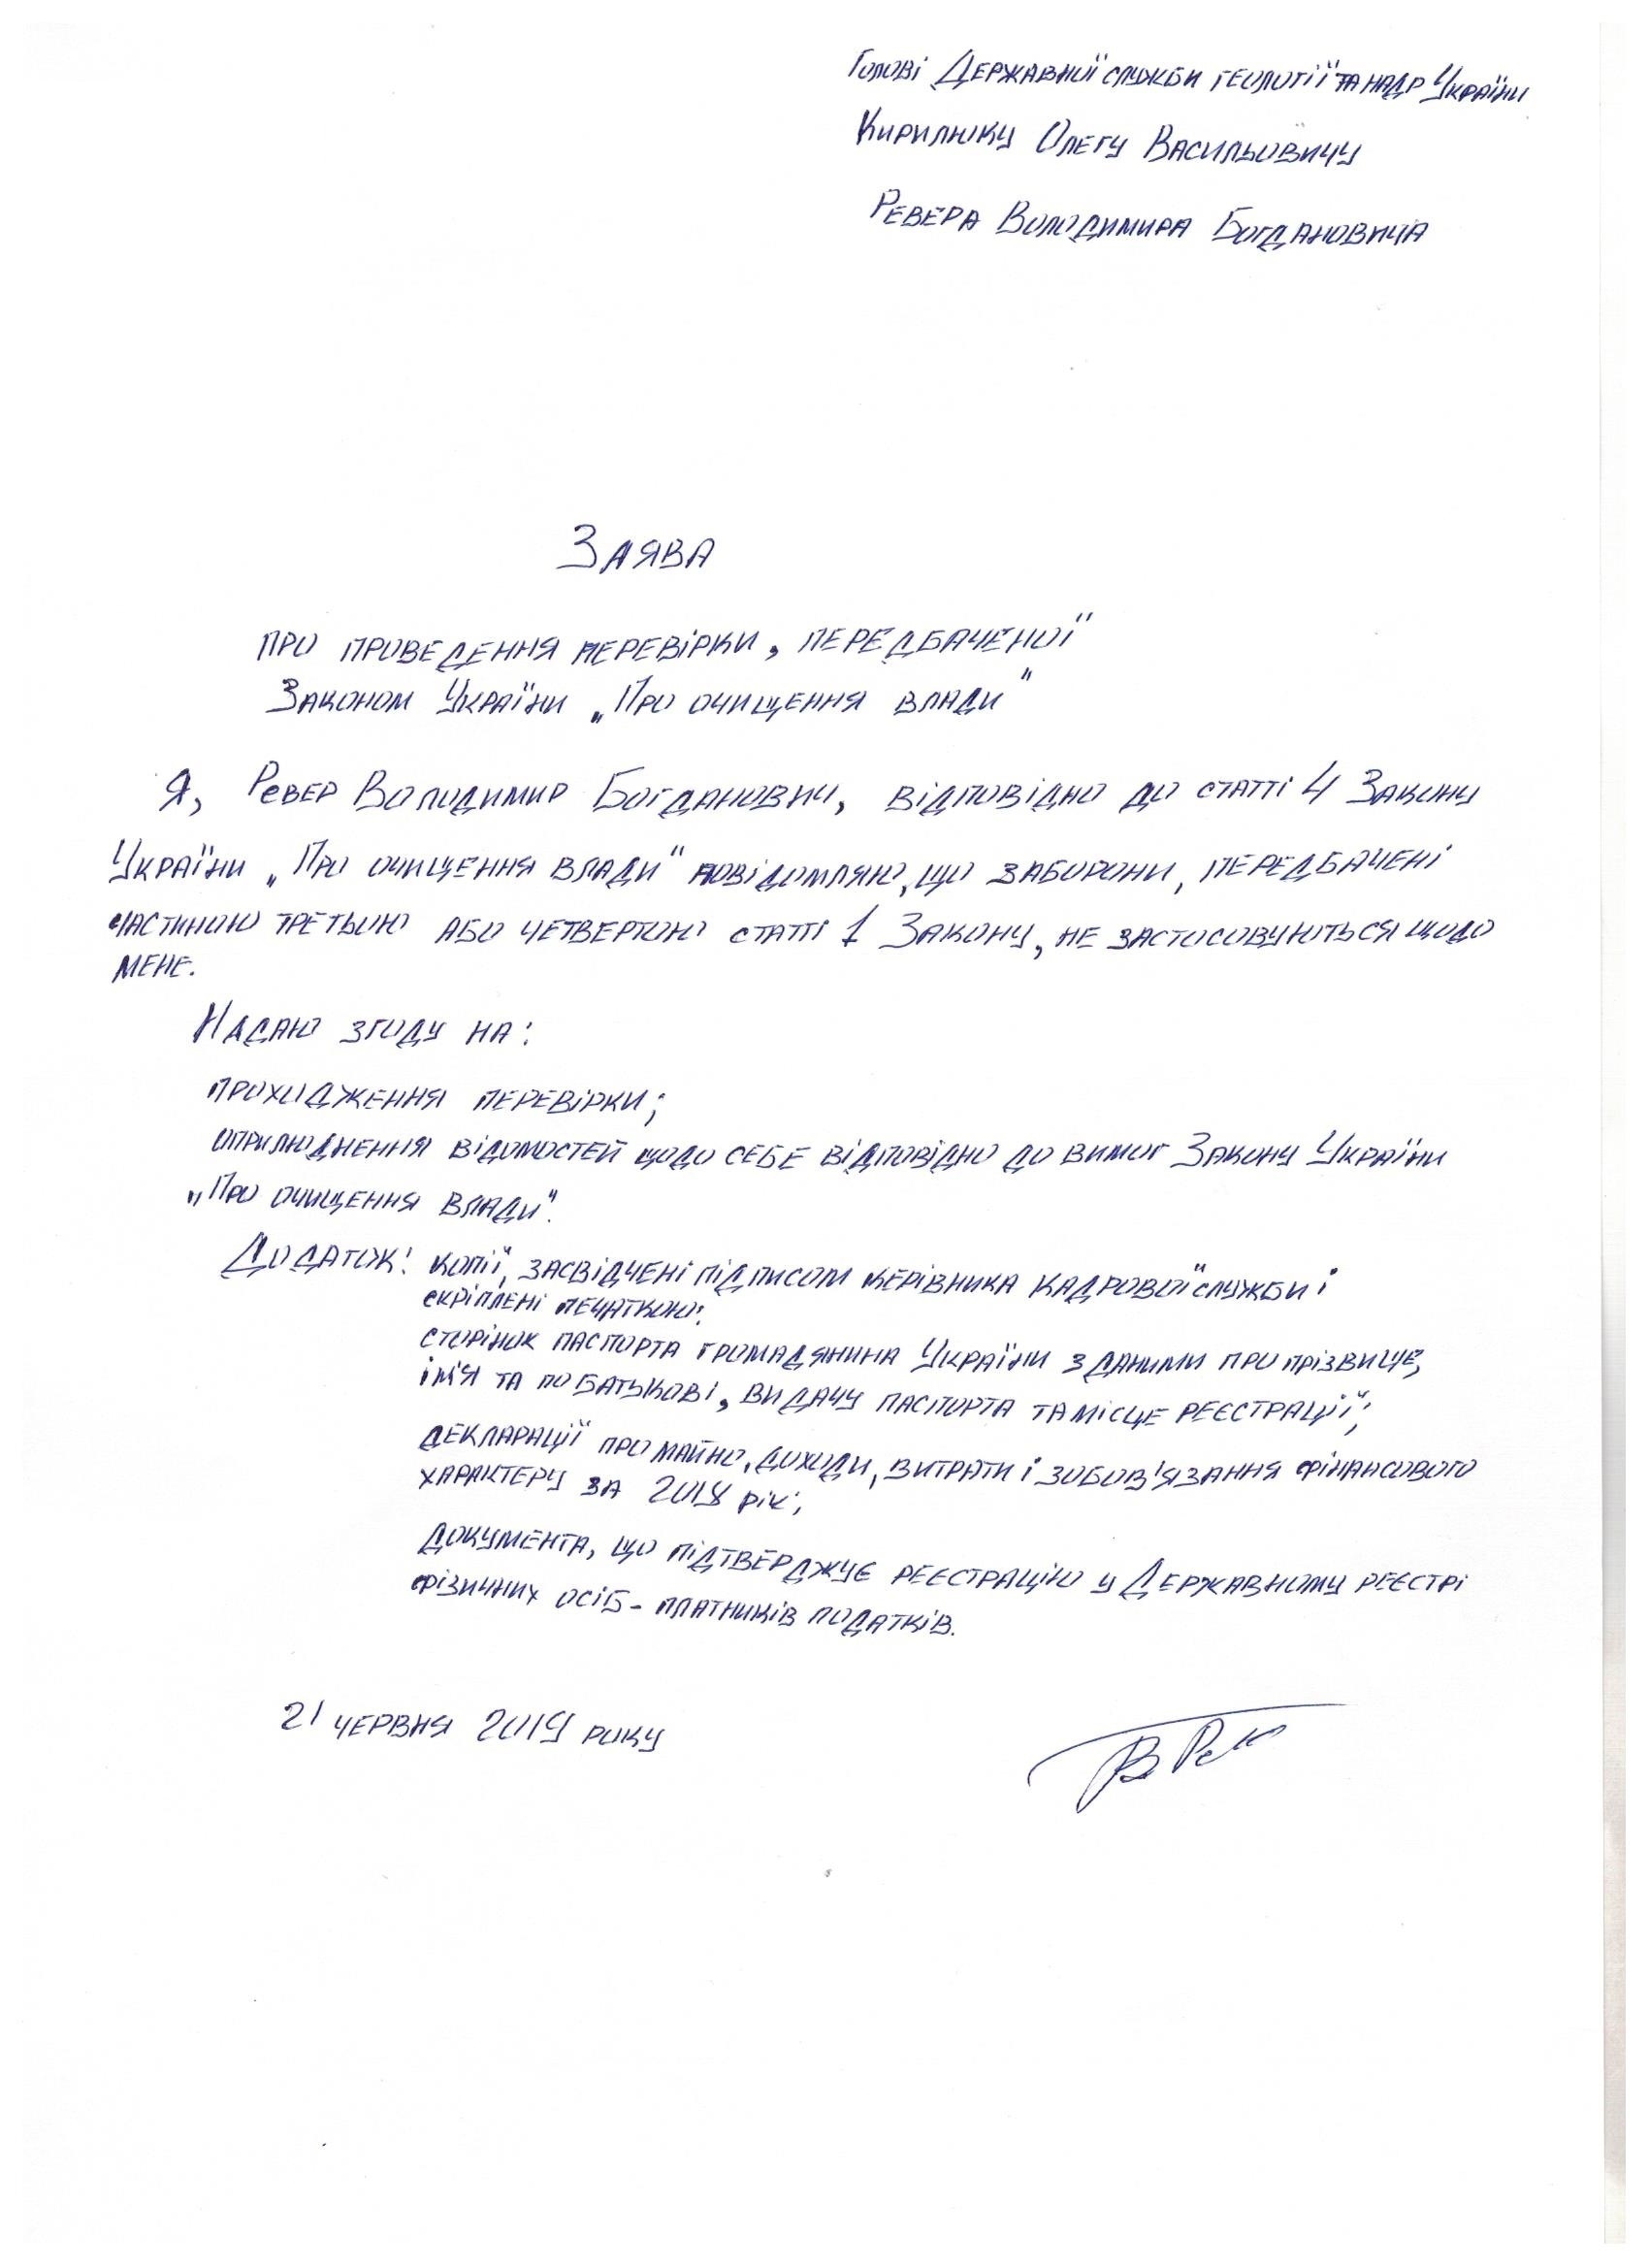 Голові Державної служби геології та надр України
Кирилюку Олегу Васильовичу
Ревера Володимира Богдановича
Заява
про проведення перевірки, передбаченої
Законом України „Про очищення влади"
Я, Ревер Володимир Богданович, відповідно до статті 4 Закону
України „Про очищення влади" повідомляю, що заборони, передбачені
частиною третьою або четвертою статті 1 Закону, не застосовуються щодо
мене.
Надаю згоду на:
проходження перевірки;
оприлюднення відомостей щодо себе відповідно до вимог Закону України
„Про очищення влади".
Додаток: копії, засвідчені підписом керівника кадрової служби і
скріплені печаткою:
сторінок паспорта громадянина України з даними про прізвище,
ім'я та по батькові, видачу паспорта та місце реєстрації;
декларації про майно, доходи, витрати і зобов'язання фінансового
характеру за 2018 рік;
документа, що підтверджує реєстрацію у Державному реєстрі
фізичних осіб - платників податків.
21 червня 2019 року